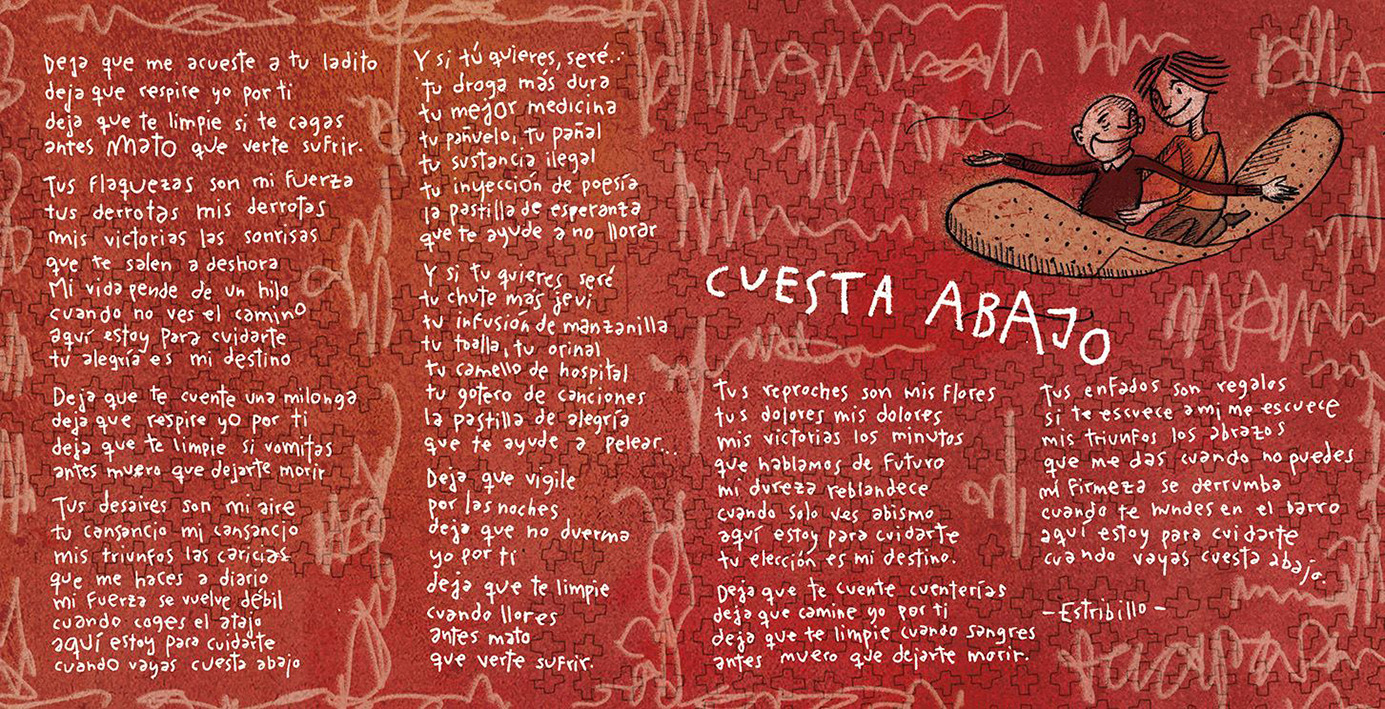 Deja que me acueste a tu ladito
deja que respire yo por ti
deja que te limpie si te cagas
antes mato que verte sufrir.
Tus flaquezas son mi fuerza
tus derrotas mis derrotas
mis victorias las sonrisas
que te salen a deshora
Mi vida pende de un hilo
cuando no ves el camino
aquí estoy para cuidarte
tu alegría es mi destino
Deja que te cuente una milonga
deja que respire yo por ti
deja que te limpie si vomitas
antes muero que dejarte morir
Tus desaires son mi aire
tu cansancio mi cansancio
mis triunfos las caricias
que me haces a diario
mi fuerza se vuelve débil
cuando coges el atajo
aquí estoy para cuidarte
cuando vayas cuesta abajo
Y si tú quieres, seré...
tu droga más dura
tu mejor medicina
tu pañuelo, tu pañal
tu sustancia ilegal
tu inyección de poesía
la pastilla de esperanza
que te ayude a no llorar
Y si tu quieres seré
tu chute más jevi
tu infusión de manzanilla
tu toalla, tu orinal
tu camello de hospital
tu gotero de canciones
la pastilla de alegría
que te ayude a pelear...
Deja que vigile
por las noches
deja que no duerma
yo por ti
deja que te limpie
cuando llores
antes mato
que verte sufrir.
CUESTA ABAJO
Tus reproches son mis flores
tus dolores mis dolores
mis victorias los minutos
que hablamos de futuro
mi dureza reblandece
cuando solo ves abismo
aquí estoy para cuidarte
tu elección es mi destino.
Deja que te cuente cuenterías
deja que camine yo por ti
deja que te limpie cuando sangres
antes muero que dejarte morir.
Tus enfados son regalos
si te escuece a mi me escuece
mis triunfos los abrazos
que me das cuando no puedes
mi firmeza se derrumba
cuando te hundes en el barro
aquí estoy para cuidarte
cuando vayas cuesta abajo.
-Estribillo-